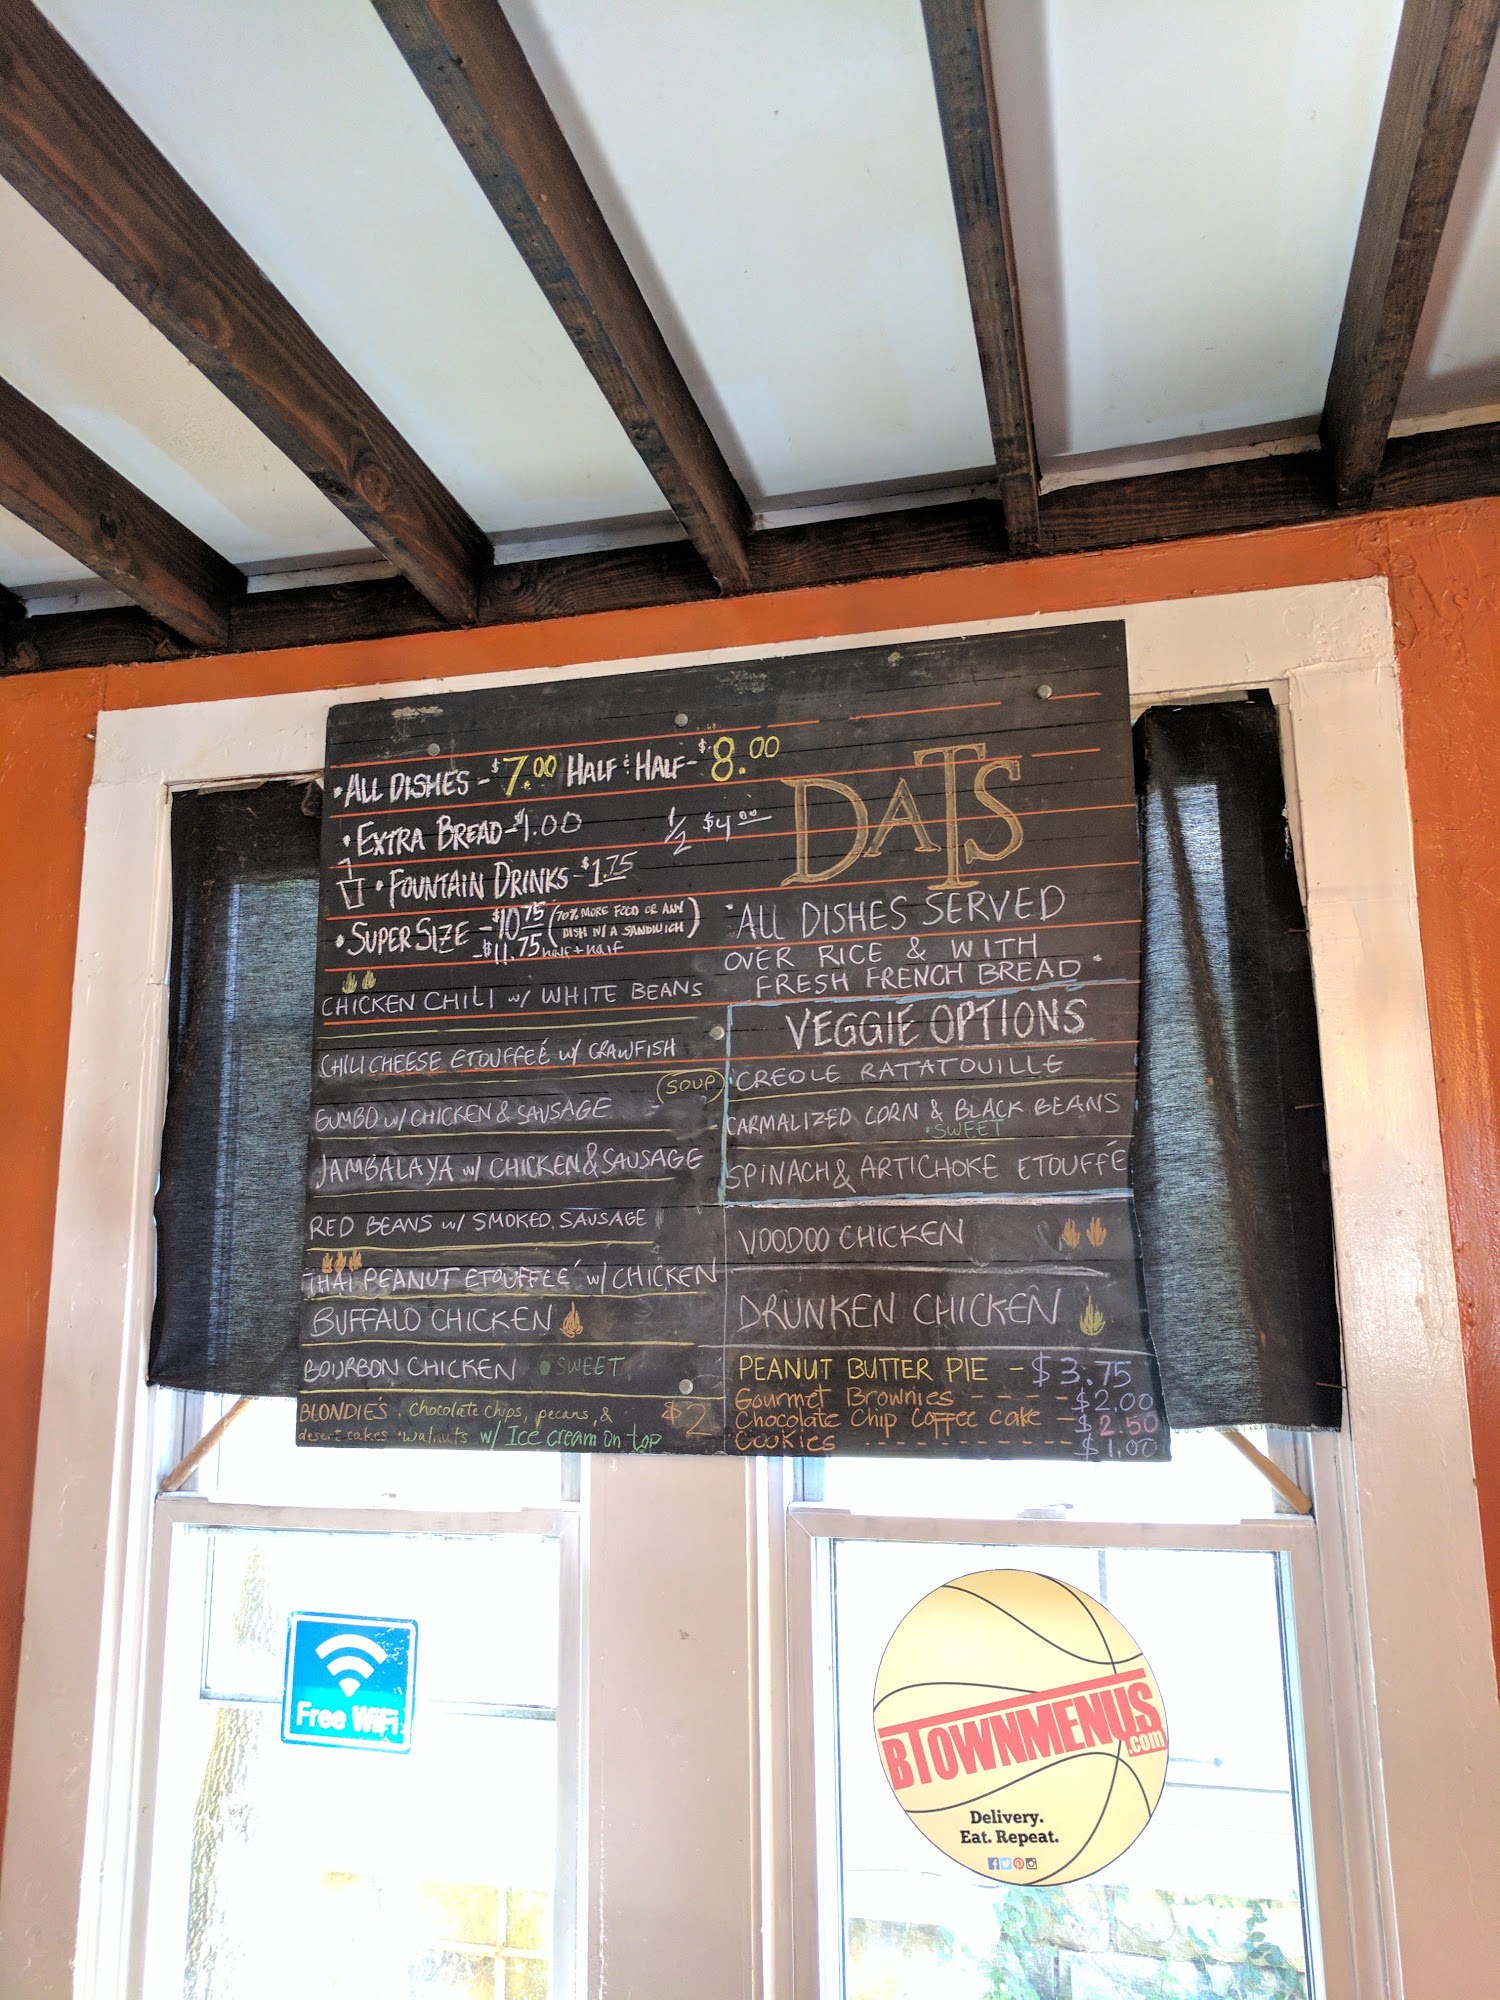 • ALL DISHES - $7.00 HALF & HALF - $8.00
• EXTRA BREAD - $1.00 1/2 $4.00
• FOUNTAIN DRINKS - $1.75
• SUPER SIZE - $10.75 (70% MORE FOOD OR ANY
DISH W/ A SANDWICH)
- $11.75 half + half
CHICKEN CHILI w/ WHITE BEANS
CHILI CHEESE ETOUFFEÉ w/ CRAWFISH
SOUP
GUMBO w/ CHICKEN & SAUSAGE
JAMBALAYA w/ CHICKEN & SAUSAGE
RED BEANS w/ SMOKED SAUSAGE
THAI PEANUT ETOUFFEÉ w/ CHICKEN
BUFFALO CHICKEN
BOURBON CHICKEN • SWEET
BLONDIE'S . chocolate chips, pecans, & $2
desert cakes • walnuts w/ Ice cream on top
DATS
"ALL DISHES SERVED
OVER RICE & WITH
FRESH FRENCH BREAD"
VEGGIE OPTIONS
CREOLE RATATOUILLE
CARMALIZED CORN & BLACK BEANS
• SWEET
SPINACH & ARTICHOKE ETOUFFÉ
VOODOO CHICKEN
DRUNKEN CHICKEN
PEANUT BUTTER PIE - $3.75
Gourmet Brownies - - - - - $2.00
Chocolate Chip Coffee cake - $2.50
Cookies - - - - - - - - - - - $1.00
Free WiFi
BTOWNMENUS
.com
Delivery.
Eat. Repeat.